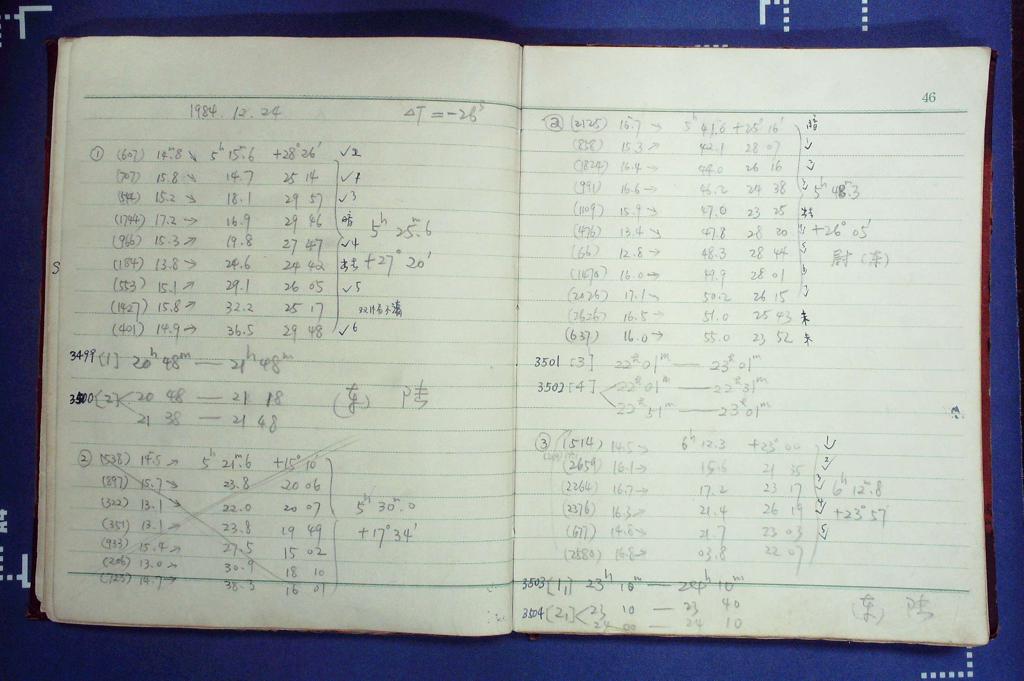 1984. 12. 24 ΔT = -26ˢ
① (607) 14ᵐ.8 ↘ 5ʰ 15ᵐ.6 +28° 26′
(707) 15.8 ↘ 14.7 25 14 √
(544) 15.2 → 18.1 29 57 √3
(1744) 17.2 → 16.9 29 46 暗 5ʰ 25ᵐ.6
(966) 15.3 → 19.8 27 47 √4
(184) 13.8 → 24.6 24 42 +27° 20′
(553) 15.1 → 29.1 26 05 √5
(1427) 15.8 → 32.2 25 17
(401) 14.9 → 36.5 29 48 √6
3499 [1] 20ʰ 48ᵐ — 21ʰ 48ᵐ
3500 [2] < 20 48 — 21 18 (东) 陆
21 38 — 21 48
② (538) 14.5 → 5ʰ 21ᵐ.6 +15° 10′
(897) 15.7 → 23.8 20 06
(322) 13.1 22.0 20 07 5ʰ 30ᵐ.0
(351) 13.1 23.8 19 49
(933) 15.4 → 27.5 15 02 +17° 34′
(206) 13.0 → 30.9 18 10
(723) 14.7 → 38.3 16 01
46
② (2125) 16ᵐ.7 → 5ʰ 41ᵐ.6 +25° 16′ 暗
(858) 15.3 → 42.1 28 07
(1824) 16.4 → 44.0 26 16
(991) 16.6 → 24 38 5ʰ 48ᵐ.3
(1109) 15.9 → 47.0 23 25
(476) 13.4 → 47.8 28 20 +26° 05′
(66) 12.8 → 48.3 28 44 尉 (东)
(1470) 16.0 → 49.9 28 01
(2026) 17.1 ↘ 50.2 26 15
(2626) 16.5 → 51.0 25 43 未
(637) 16.0 → 55.0 23 52 未
3501 [3] 22ʰ 01ᵐ — 23ʰ 01ᵐ
3502 [4] < 22ʰ 01ᵐ — 22ʰ 31ᵐ
22ʰ 51ᵐ — 23ʰ 01ᵐ
③ (1514) 14.5 → 6ʰ 12.3 +23° 00
(2659) 16.1 → 15.6 21 35
(2264) 16.7 → 17.2 23 17 6ʰ 12ᵐ.8
(2376) 16.3 → 21.4 26 19 +23° 57′
(677) 14.6 → 21.7 23 03
(2580) 16.8 → 03.8 22 07
3503 [1] 23ʰ 10ᵐ — 24ʰ 10ᵐ
3504 [2] < 23 10 — 23 40 (东) 陆
24 00 — 24 10